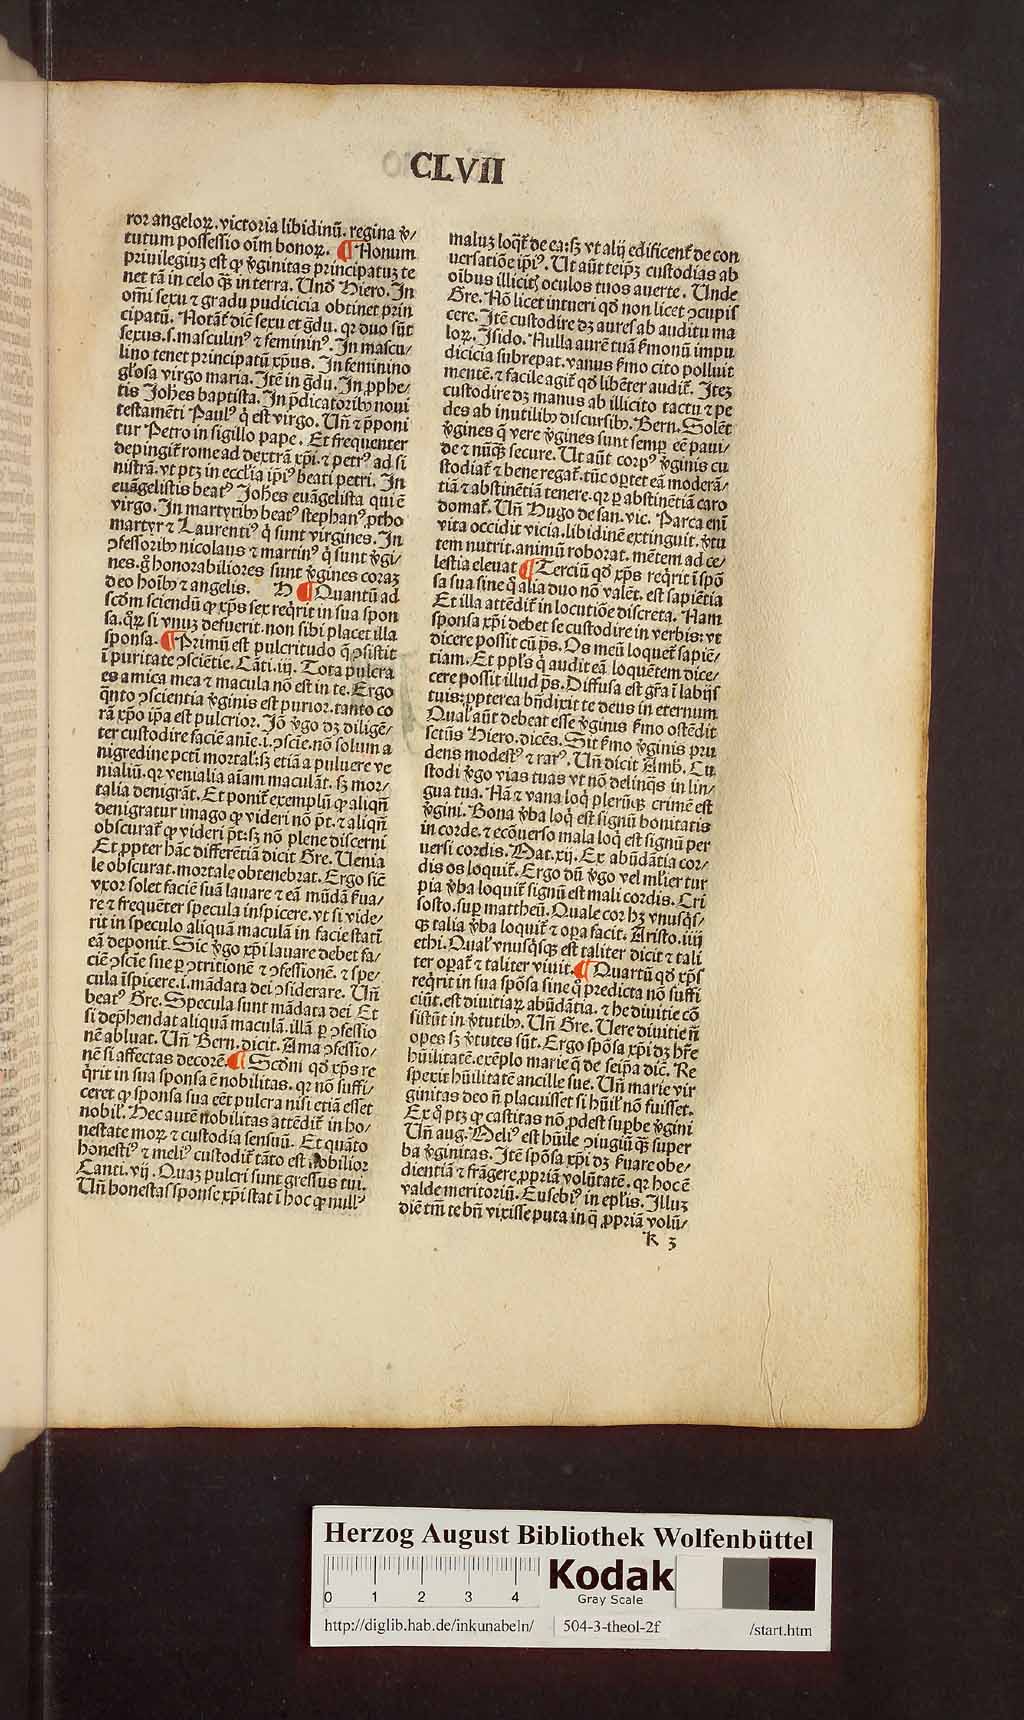 CLVII
ror angeloꝝ. victoria libidinū. regina ꝟ/
tutum possessio oīm bonoꝝ. ¶ Nonum
priuilegiuꝫ est ꝙ ꝟginitas principatuꝫ te
net tā in celo qꝫ in terra. Unđ Hiero. In
om̄i sexu ⁊ gradu pudicicia obtinet prin
cipatū. Notāt̄ dic̄e sexu et g̃du. qꝛ duo sūt
sexus. s. masculinꝰ ⁊ femininꝰ. In mascu/
lino tenet principatū xp̄us. In feminino
gl̄osa virgo maria. Itē in g̃du. In ꝓphe/
tis Joh̄es baptista. In p̄dicatoribꝰ noui
testamēti Paulꝰ q̇ est virgo. Un̄ ⁊ p̄poni
tur Petro in sigillo pape. Et frequenter
depingit̄ rome ad dextrā xp̄i. ⁊ petrꝰ ad si
nistrā. vt ptꝫ in eccl̄ia ip̄iꝰ beati petri. In
euāgelistis beatꝰ Joh̄es euāgelista qui ē
virgo. In martyribꝰ beatꝰ stephanꝰ ꝓtho
martyr ⁊ Laurentiꝰ q̇ sunt virgines. In
ꝯfessoribꝰ nicolaus ⁊ martinꝰ q̇ sunt ꝟgi/
nes. g̊ honorabiliores sunt ꝟgines coraꝫ
deo hoīb̄ ⁊ angelis. H ¶ Quantū ad
scd̄m sciendū ꝙ xp̄s sex reqͥrit in sua spon
sa. qͣꝝ si vnuꝫ defuerit. non sibi placet illa
sponsa. ¶ Primū est pulcritudo q̄ ꝯsistit
ī puritate ꝯsciētie. Cāti. iiij. Tota pulcra
es amica mea ⁊ macula nō est in te. Ergo
qͣnto ꝯscientia ꝟginis est purior. tanto co
rā xp̄o ip̄a est pulcrior. Jō ꝟgo dꝫ diligē/
ter custodire faciē anīe. i. ꝯsciē. nō solum a
nigredine pctī mortal̓: sꝫ etiā a puluere ve
nialiū. qꝛ venialia aīam maculāt. sꝫ mor/
talia denigrāt. Et ponit̄ exemplū ꝙ aliqn̄
denigratur imago ꝙ videri nō p̄t. ⁊ aliqn̄
obscurat̄ ꝙ videri p̄t: sꝫ nō plene discerni
Et ꝓpter hāc differētiā dicit Gre. Uenia
le obscurat. mortale obtenebrat. Ergo sic̄
vxor solet faciē suā lauare ⁊ eā mūdā ẜua/
re ⁊ frequēter specula inspicere. vt si vide/
rit in speculo aliquā maculā in facie statī
eā deponit. Sic ꝟgo xp̄i lauare debet fa/
ciē ꝯsciē sue ꝑ ꝯtritionē ⁊ ꝯfessionē. ⁊ spe/
cula īspicere. i. mādata dei ꝯsiderare. Un̄
beatꝰ Gre. Specula sunt mādata dei Et
si dep̄hendat aliquā maculā. illā ꝑ ꝯfessio
nē abluat. Un̄ Bern. dicit. Ama ꝯfessio/
nē si affectas decorē. ¶ Scd̄m qđ xp̄s re
qͥrit in sua sponsa ē nobilitas. qꝛ nō suffi/
ceret ꝙ sponsa sua eēt pulcra nisi etiā esset
nobil̓. Hec autē nobilitas attēdit̄ in ho/
nestate moꝝ ⁊ custodia sensuū. Et quāto
honestiꝰ ⁊ meliꝰ custodit̄ tāto est nobilior
Canti. vij. Quaꝫ pulcri sunt gressus tui.
Un̄ honestas sponse xp̄i stat ī hoc ꝙ nullꝰ
maluꝫ loqͣt̄ de ea: sꝫ vt alij edificent̄ de con
uersatiōe ip̄iꝰ. Ut aūt teip̄ꝫ custodias ab
oībus illicitꝭ oculos tuos auerte. Unde
Gre. Nō licet intueri qđ non licet ꝯcupis
cere. Itē custodire dꝫ aures ab auditu ma
loꝝ. Isido. Nulla aurē tuā ẜmonū impu
dicicia subrepat. vanus ẜmo cito polluit
mentē. ⁊ facile agit̄ qđ libēter audit̄. Iteꝫ
custodire dꝫ manus ab illicito tactu ⁊ pe
des ab inutilibꝰ discursibꝰ. Bern. Solēt
ꝟgines q̄ vere ꝟgines sunt semꝑ eē paui/
de ⁊ nūqꝫ secure. Ut aūt corpꝰ ꝟginis cu
stodiat̄ ⁊ bene regat̄. tūc oꝑtet eā moderā/
tiā ⁊ abstinētiā tenere. qꝛ ꝑ abstinētiā caro
domat̄. Un̄ Hugo de san. vic. Parca enī
vita occidit vicia. libidinē extinguit. ꝟtu
tem nutrit. animū roborat. mētem ad ce/
lestia eleuat ¶ Terciū qđ xp̄s reqͥrit ī spō
sa sua sine q̇ alia duo nō valēt. est sapiētia
Et illa attēdit̄ in locutiōe discreta. Nam
sponsa xp̄i debet se custodire in verbis: vt
dicere possit cū p̄s. Os meū loquet̄ sapiē/
tiam. Et ppl̄s q̇ audit eā loquētem dice/
cere possit illud p̄s. Diffusa est gr̄a ī labijs
tuis: ꝓpterea bn̄dixit te deus in eternum
Qual̓ aūt debeat esse ꝟginis ẜmo ostēdit
sctūs Hiero. dicēs. Sit ẜmo ꝟginis pru
dens modestꝰ ⁊ rarꝰ. Un̄ dicit Amb. Cu
stodi ꝟgo vias tuas vt nō delinqͣs in lin/
gua tua. Nā ⁊ vana loqͥ plerūqꝫ crimē est
ꝟgini. Bona ꝟba loqͥ est signū bonitatis
in corde. ⁊ ecōuerso mala loqͥ est signū per
uersi cordis. Mat. xij. Ex abūdātia cor/
dis os loquit̄. Ergo dū ꝟgo vel ml̓ier tur
pia ꝟba loquit̄ signū est mali cordis. Cri
sosto. suꝑ mattheū. Quale cor hꝫ vnusqͥs/
qꝫ talia ꝟba loquit̄ ⁊ oꝑa facit. Aristo. iiij
ethi. Qual̓ vnusqͥsqꝫ est taliter dicit ⁊ tali
ter oꝑat̄ ⁊ taliter viuit. ¶ Quartū qđ xp̄s
reqͥrit in sua spōsa sine q̊ predicta nō suffi
ciūt. est diuitiaꝝ abūdātia. ⁊ he diuitie cō
sistūt in ꝟtutibꝰ. Un̄ Gre. Uere diuitie n̄
opes sꝫ ꝟtutes sūt. Ergo spōsa xp̄i dꝫ hr̄e
hūilitatē. exēplo marie q̄ de seip̄a dic̄. Re
spexit hūilitatē ancille sue. Un̄ marie vir
ginitas deo n̄ placuisset si hūil̓ nō fuisset.
Ex q̊ ptꝫ ꝙ castitas nō ꝓdest suꝑbe ꝟgini
Un̄ aug. Meliꝰ est hūile ꝯiugiū qꝫ super
ba ꝟginitas. Itē spōsa xp̄i dꝫ ẜuare obe/
dientiā ⁊ frāgere ꝓpriā volūtatē. qꝛ hoc ē
valde meritoriū. Eusebiꝰ in epl̄is. Illuꝫ
diē tm̄ te bn̄ vixisse puta in q̊ ꝓpriā volū/
k 3
Herzog August Bibliothek Wolfenbüttel
0 1 2 3 4
Kodak
Gray Scale
http://diglib.hab.de/inkunabeln/ 504-3-theol-2f /start.htm